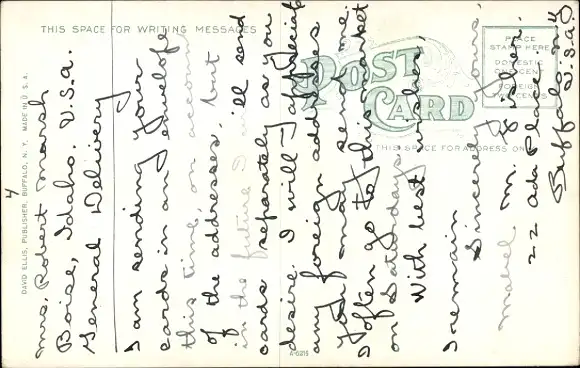 THIS SPACE FOR WRITING MESSAGES
POST
CARD
PLACE
STAMP HERE
DOMESTIC
ONE CENT
FOREIGN
TWO CENTS
THIS SPACE FOR ADDRESS ONLY
DAVID ELLIS, PUBLISHER, BUFFALO, N. Y. MADE IN U. S. A.
A-5215
4
Mrs. Robert Marsh
Boise, Idaho. U.S.A.
General Delivery
I am sending your
cards in an envelope
this time, on account
of the addresses, but
in the future I will send
cards separately as you
desire. I will appreciate
any foreign addresses
you may send me.
I often go to this market
on Saturdays.
With best wishes,
I remain
Sincerely Yours,
Mabel M.
22 Ada Place.
Buffalo, N.Y.
U.S.A.